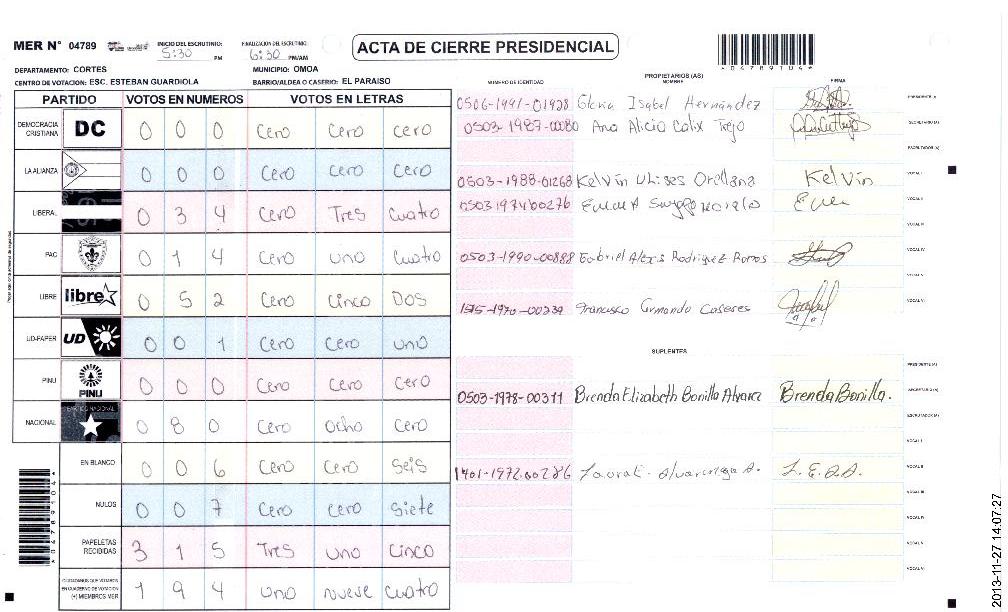 MER N° 04789 INICIO DEL ESCRUTINIO: 5:30 PM FINALIZACIÓN DEL ESCRUTINIO: 6:30 PM/AM ACTA DE CIERRE PRESIDENCIAL
*04789104*
DEPARTAMENTO: CORTES MUNICIPIO: OMOA
CENTRO DE VOTACION: ESC. ESTEBAN GUARDIOLA BARRIO/ALDEA O CASERIO: EL PARAISO
PARTIDO VOTOS EN NUMEROS VOTOS EN LETRAS
DEMOCRACIA CRISTIANA DC 0 0 0 Cero Cero cero
LA ALIANZA 0 0 0 Cero Cero Cero
LIBERAL 0 3 4 Cero Tres Cuatro
PAC 0 1 4 Cero uno Cuatro
LIBRE libre 0 5 2 Cero Cinco Dos
UD-FAPER UD 0 0 1 Cero Cero uno
PINU PINU 0 0 0 Cero Cero Cero
NACIONAL 0 8 0 Cero Ocho Cero
EN BLANCO 0 0 6 Cero Cero Seis
NULOS 0 0 7 Cero cero Siete
PAPELETAS RECIBIDAS 3 1 5 Tres uno Cinco
CIUDADANOS QUE VOTARON EN CUADERNO DE VOTACION (+) MIEMBROS MER 1 9 4 uno nueve Cuatro
NUMERO DE IDENTIDAD PROPIETARIOS (AS) NOMBRE FIRMA
0506-1991-01928 Gloria Isabel Hernández PRESIDENTE (A)
0503-1987-00080 Ana Alicia Calix Trejo SECRETARIO (A)
ESCRUTADOR (A)
0503-1988-01268 Kelvin Ulises Orellana Kelvin VOCAL I
0503197400276 VOCAL II
VOCAL III
0503-1990-00888 Gabriel Alexis Rodriguez Ramos VOCAL IV
VOCAL V
Francisco Armando Caseres VOCAL VI
SUPLENTES
PRESIDENTE (A)
0503-1978-00311 Brenda Elizabeth Bonilla Alvarez Brenda Bonilla. SECRETARIO (A)
ESCRUTADOR (A)
VOCAL I
1401-1972.00286 L.E.A.A. VOCAL II
VOCAL III
VOCAL IV
VOCAL V
VOCAL VI
*04789104*
2013-11-27 14:07:27